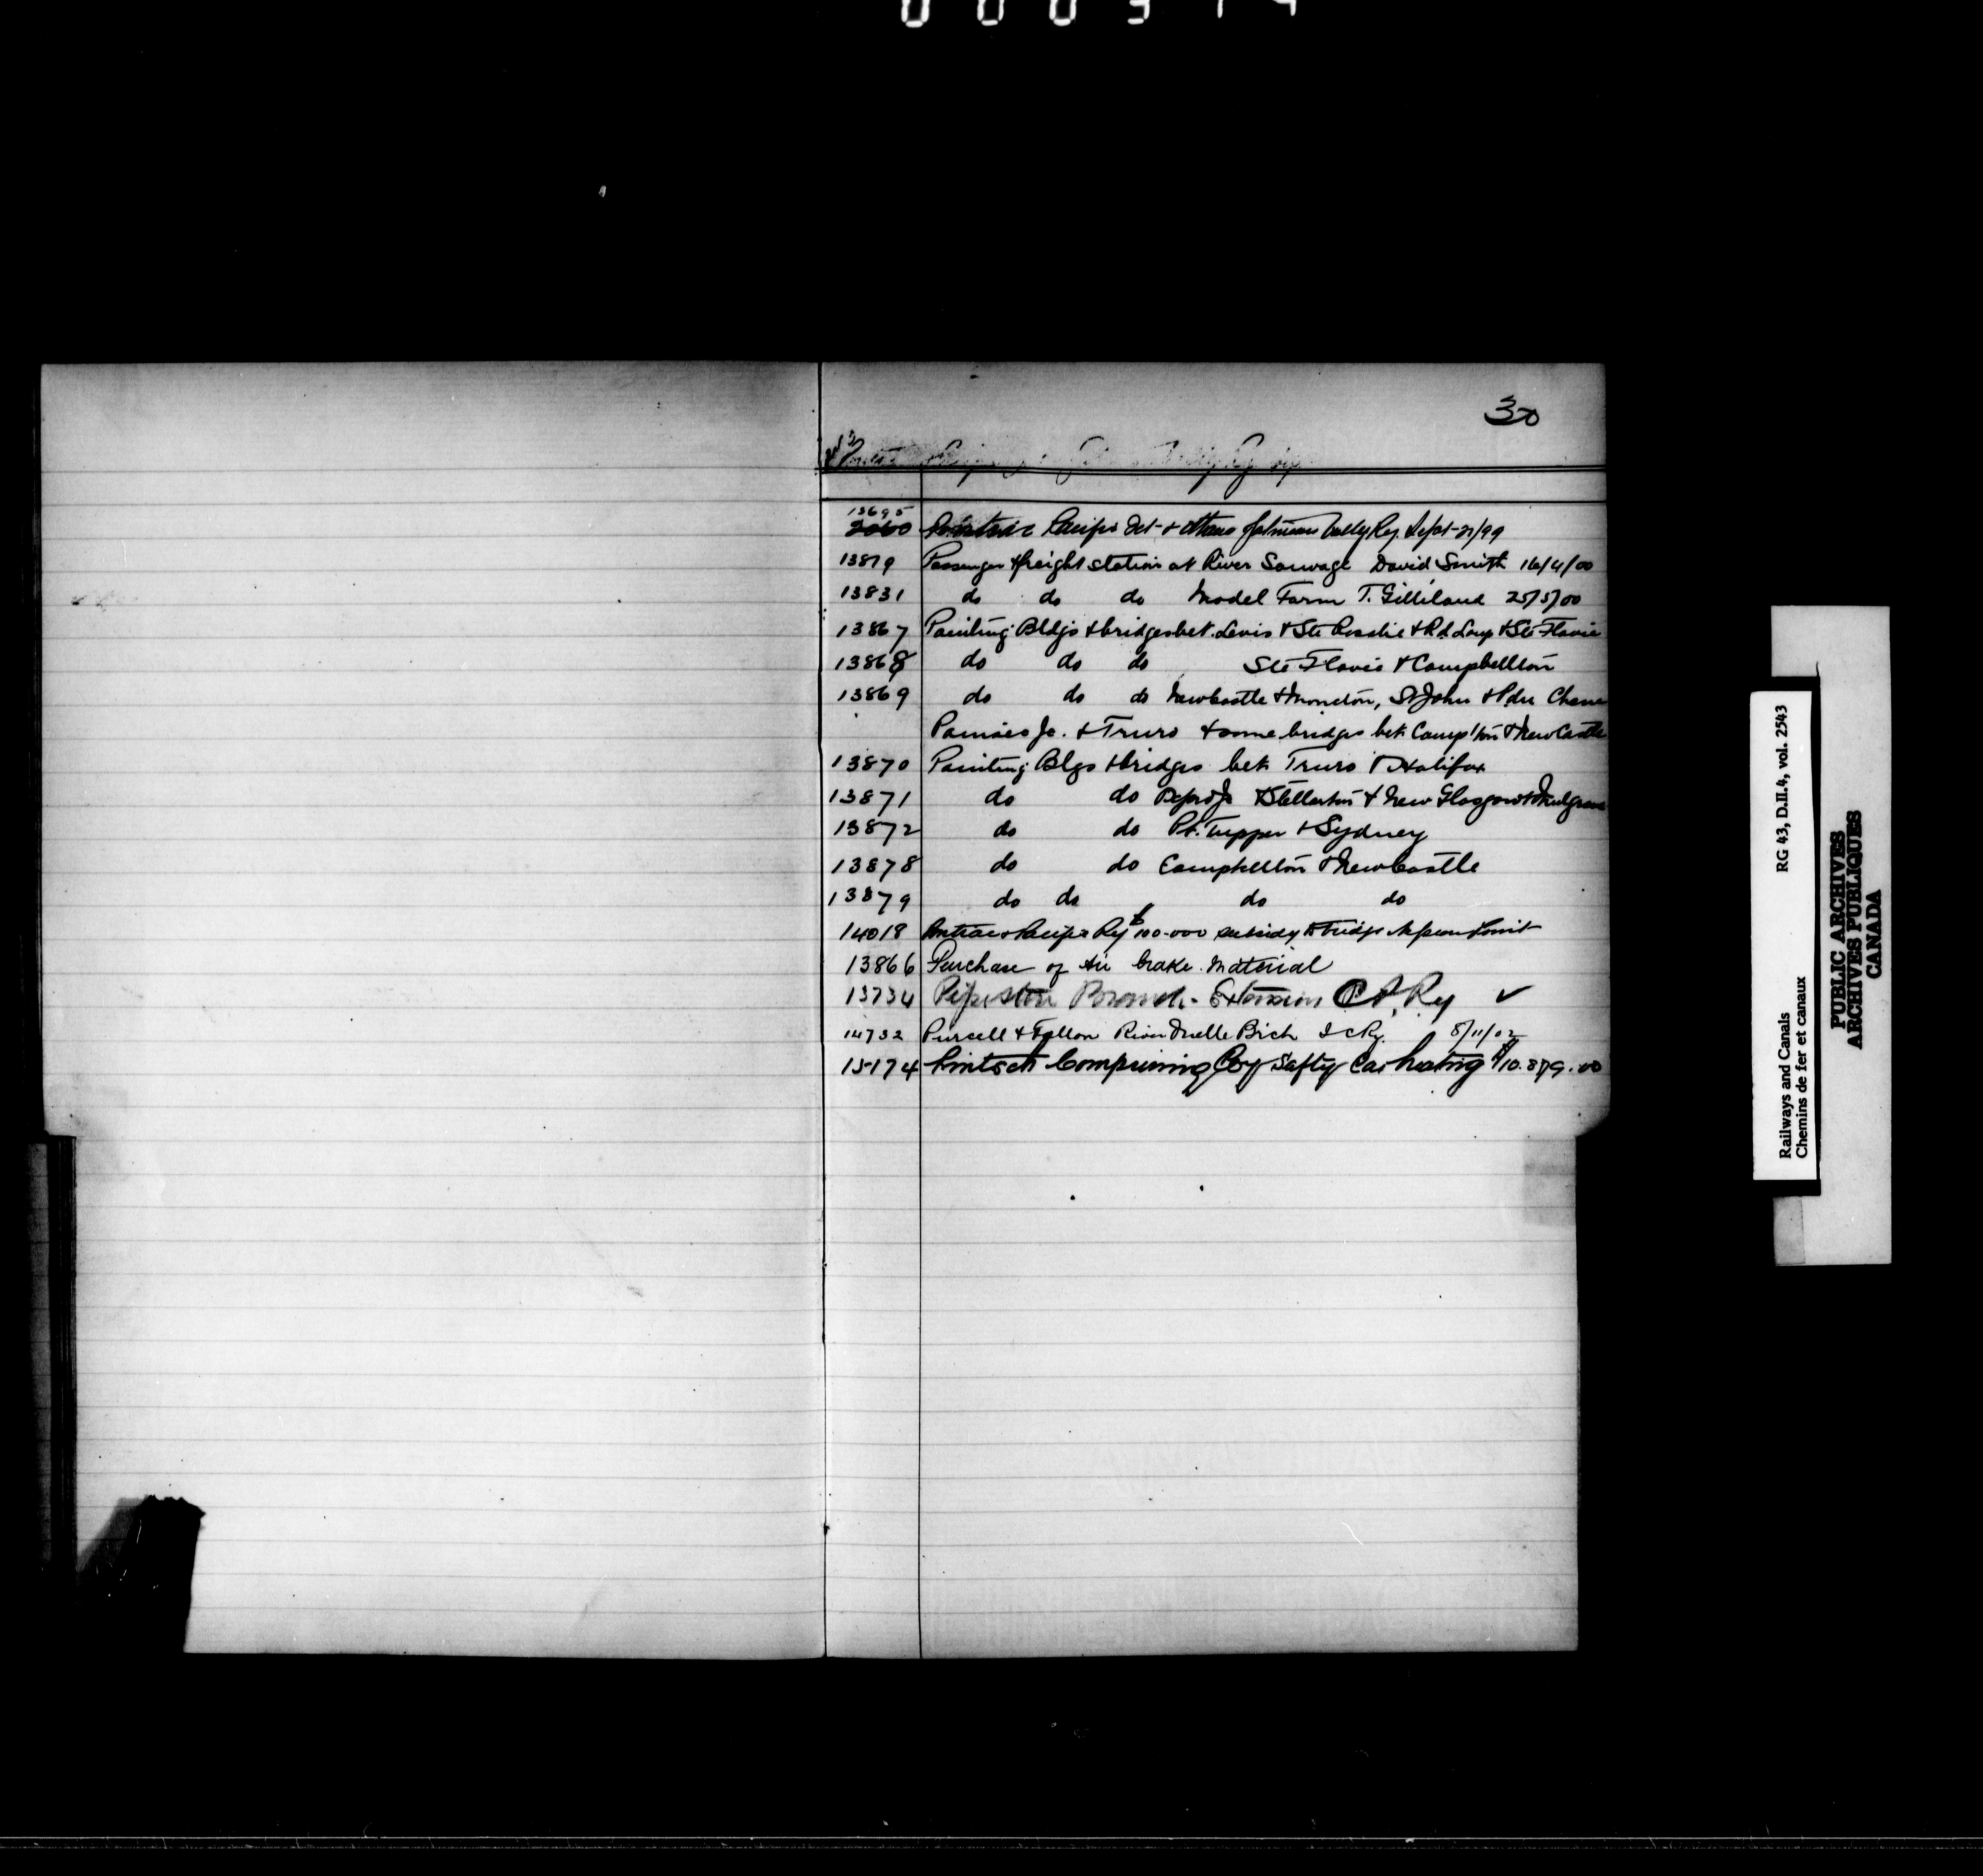 30
13695
2060 Pontiac Pacific Jct & Ottawa Gatineau Valley Ry. Sept 21/99
13819 Passenger & freight station at River Sauvage David Smith 16/4/00
13831 do do do Model Farm T. Gilliland 25/5/00
13867 Painting Bldgs & bridges bet. Levis & Ste Rosalie & R.d. Loup & Ste Flavie
13868 do do do Ste Flavie & Campbellton
13869 do do do Newcastle & Moncton, St John & P. du Chene
Painsec Jc. & Truro & some bridges bet Camp'ton & NewCastle
13870 Painting Blgs & bridges bet Truro & Halifax
13871 do do Stellarton & New Glasgow & Mulgrave
13872 do do Pt. Tupper & Sydney
13878 do do Campbellton & Newcastle
13879 do do do do
14018 Pontiac & Pacific Ry $100.000 subsidy to bridge Nepean Point
13866 Purchase of Air brake Material
13734 Pipestone Branch - Extension C.P. Ry ✓
14732 Purcell & Fallon River Ouelle Brch I C Ry. 8/11/02
15174 Pintsch Compressing Coy Safty Car heating $10.879.00
RG 43, D.II.4, vol. 2543
Railways and Canals
Chemins de fer et canaux
PUBLIC ARCHIVES
ARCHIVES PUBLIQUES
CANADA